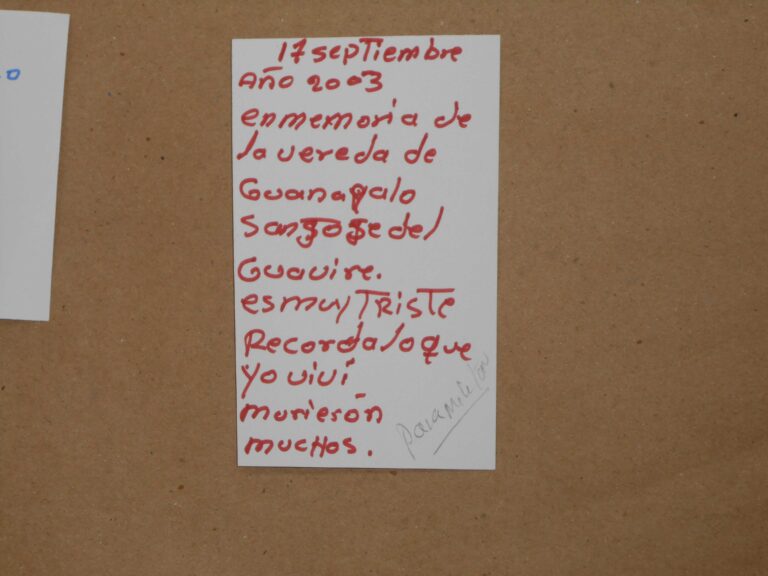 17 septiembre
Año 2003
enmemoria de
la vereda de
Guanapalo
San Jose del
Guavire.
es muy TRisTe
Recordaloque
yo viví
murierón
mucHos.